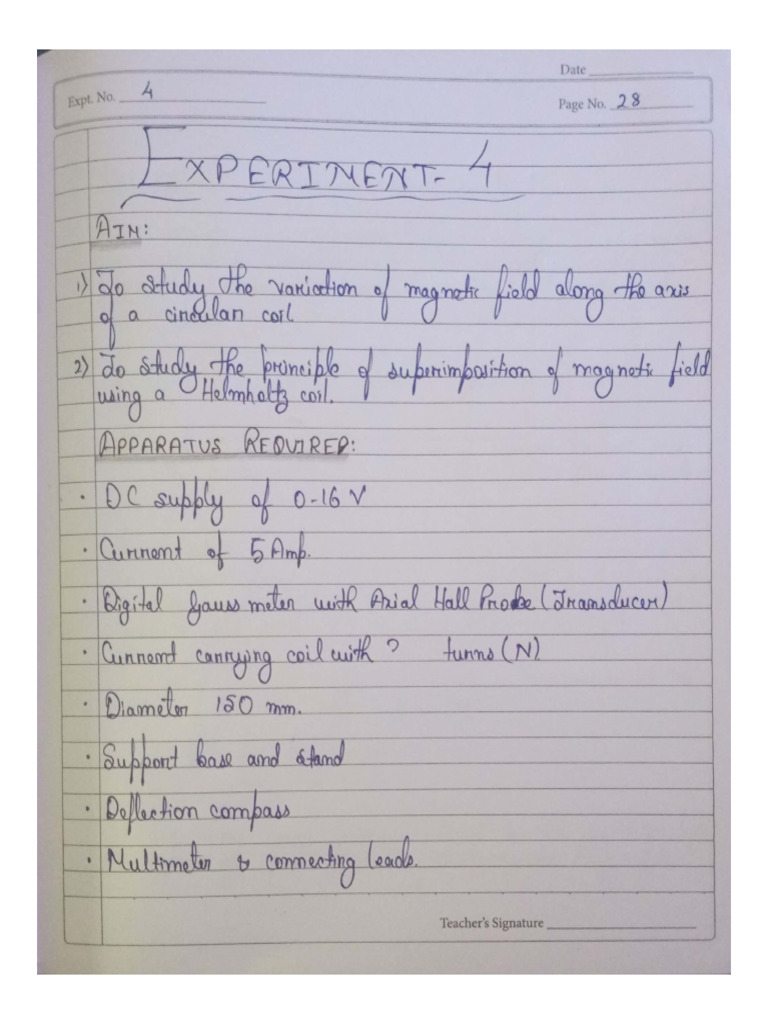 Date
Expt. No. 4
Page No. 28
EXPERIMENT- 4
AIM:
1) To study the variation of magnetic field along the axis
of a circular coil
2) To study the principle of superimposition of magnetic field
using a Helmholtz coil.
APPARATUS REQUIRED:
· DC supply of 0-16 V
· Current of 5 Amp.
· Digital Gauss meter with Axial Hall Probe (Transducer)
· Current carrying coil with ? turns (N)
· Diameter 150 mm.
· Support base and stand
· Deflection compass
· Multimeter & connecting leads.
Teacher's Signature